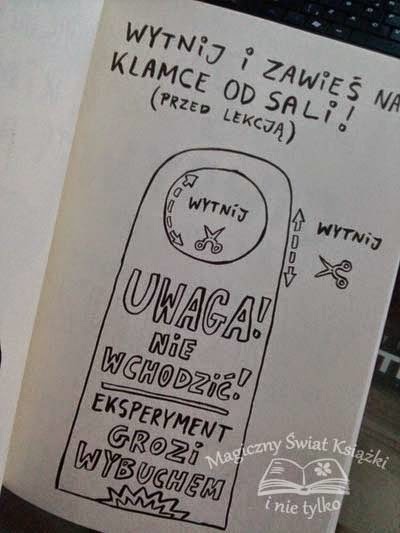 WYTNIJ I ZAWIEŚ NA
KLAMCE OD SALI!
(PRZED LEKCJĄ)
WYTNIJ
WYTNIJ
UWAGA!
NIE
WCHODZIĆ!
EKSPERYMENT
GROZI
WYBUCHEM
Magiczny Świat Książki
i nie tylko